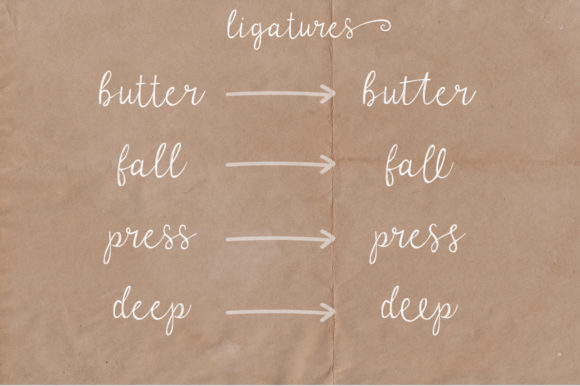 ligatures
butter → butter
fall → fall
press → press
deep → deep